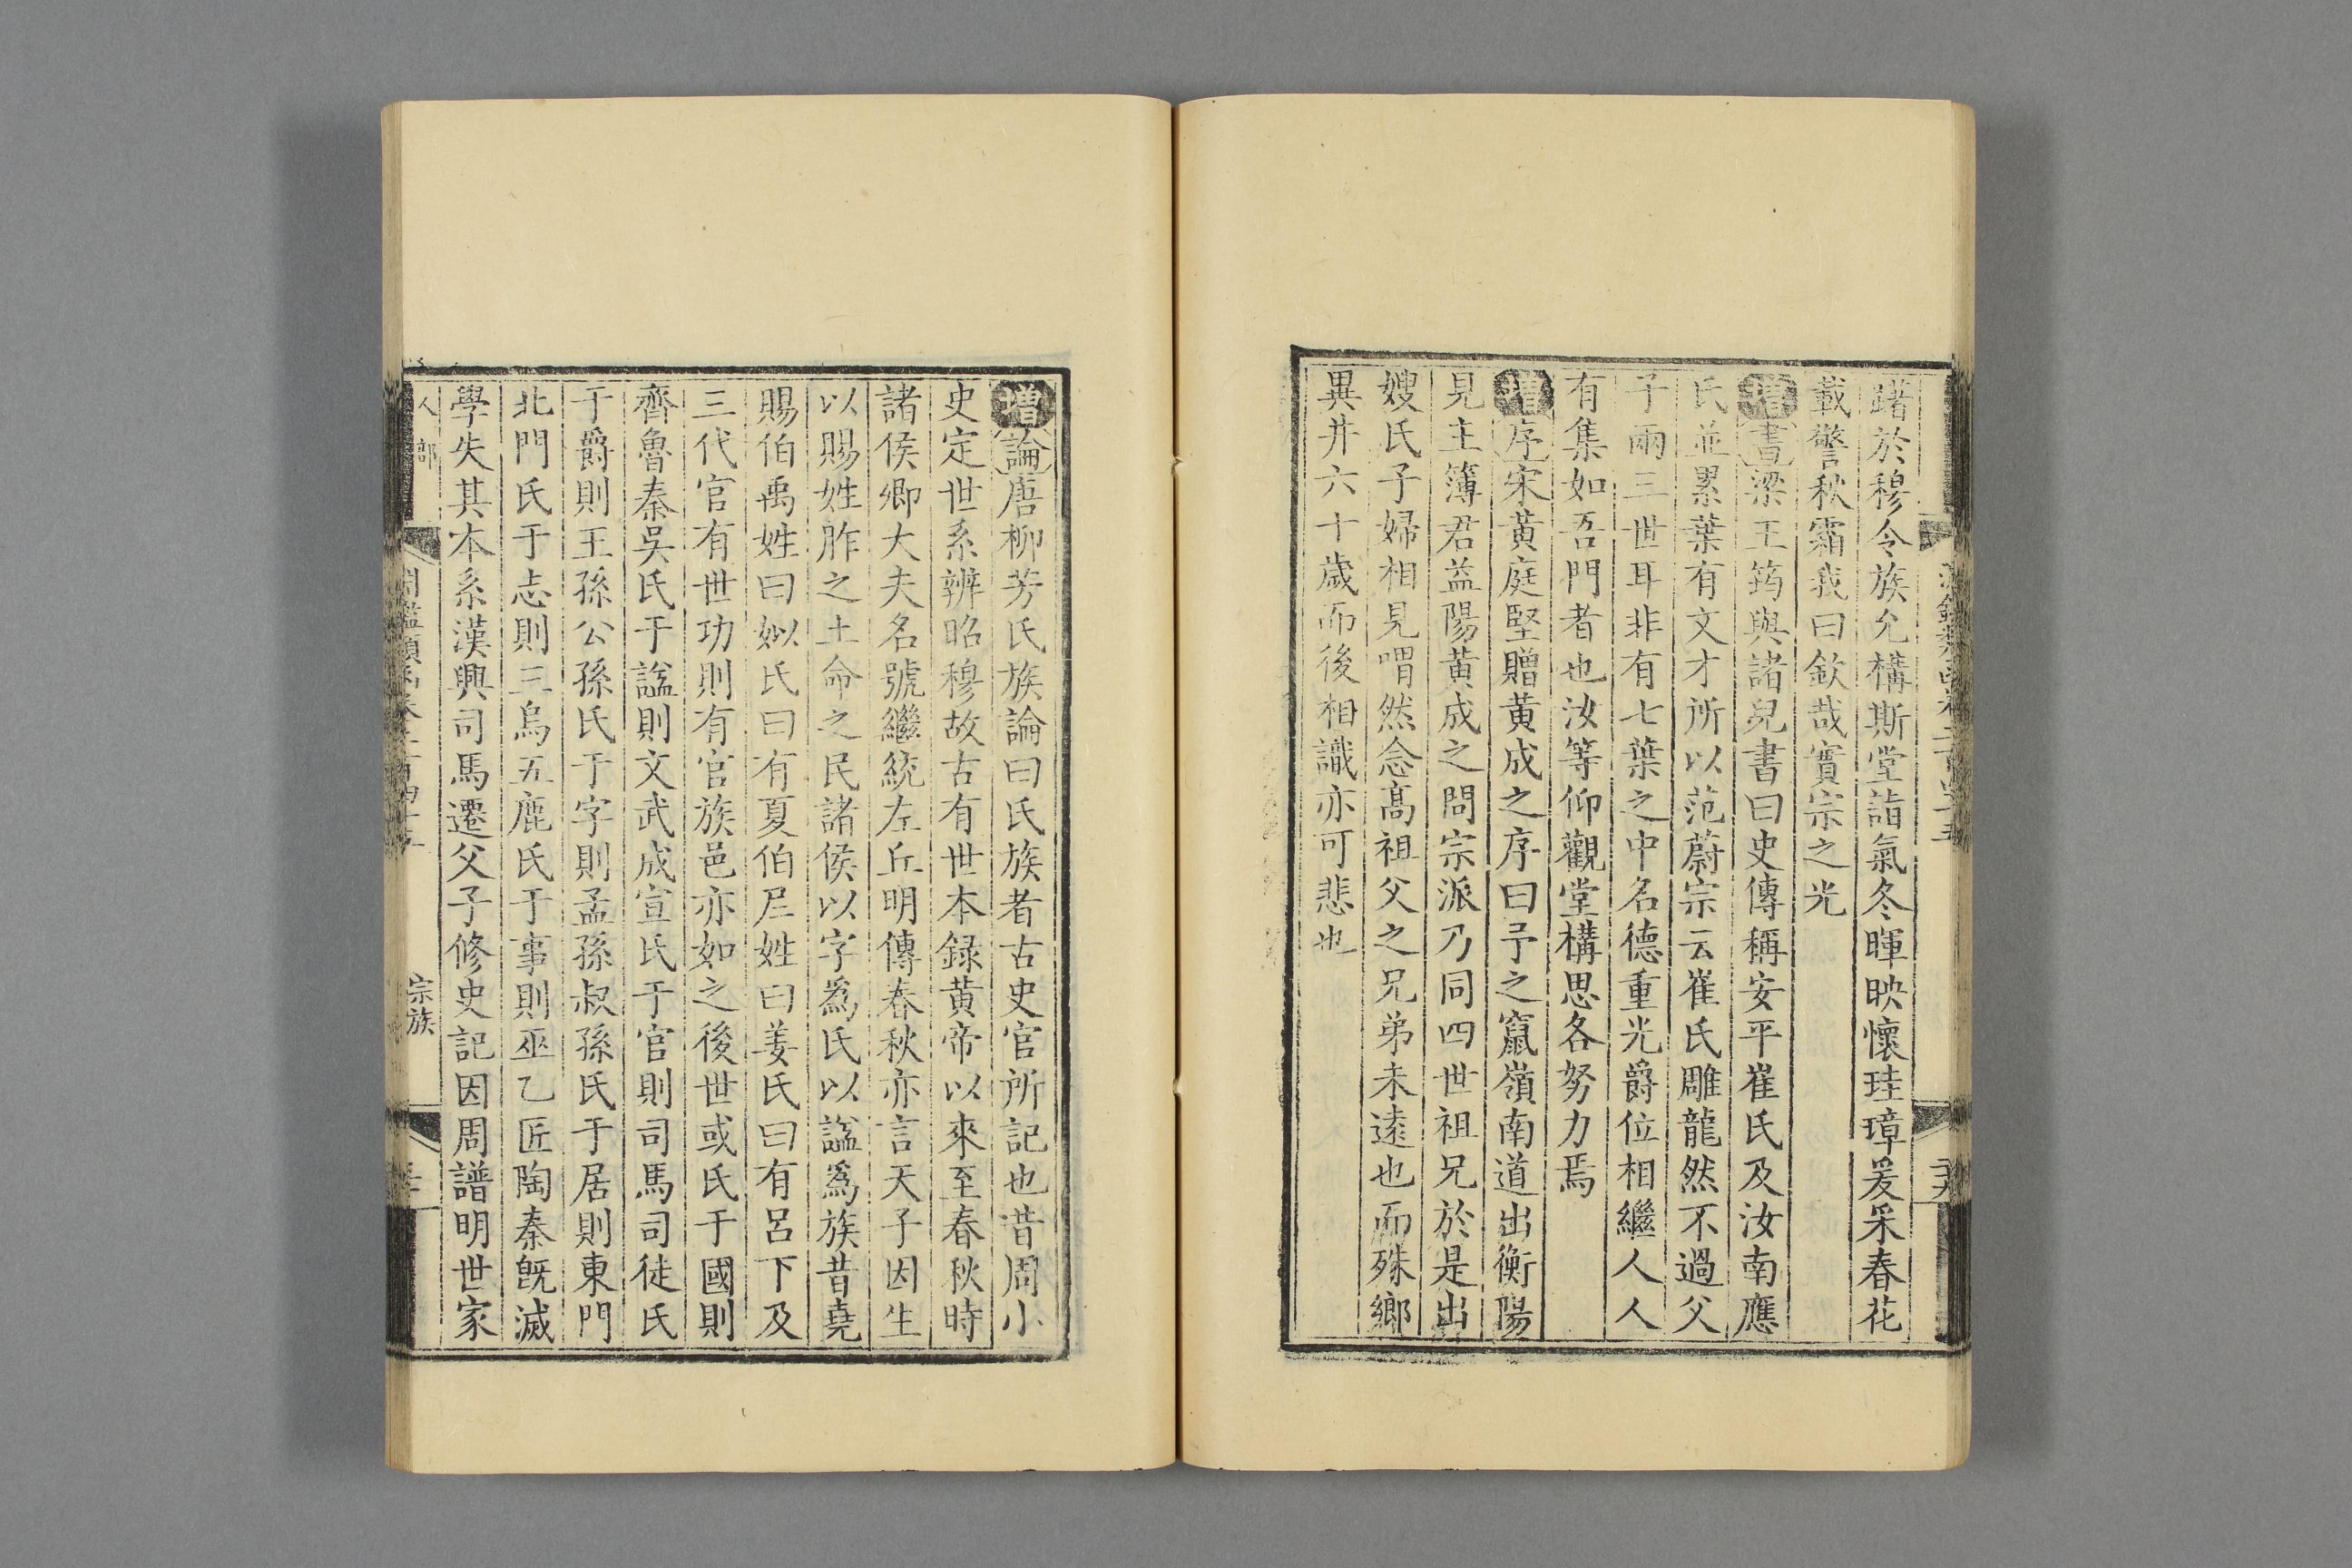 躇於穆令族允構斯堂詣氣冬暉映懷珪璋爰采春花
載警秋霜我曰欽哉實宗之光
增書梁王筠與諸兒書曰史傳稱安平崔氏及汝南應
氏並累葉有文才所以范蔚宗云崔氏雕龍然不過父
子兩三世耳非有七葉之中名德重光爵位相繼人人
有集如吾門者也汝等仰觀堂構思各努力焉
增序宋黄庭堅贈黄成之序曰予之竄嶺南道出衡陽
見主簿君益陽黄成之問宗派乃同四世祖兄於是出
嫂氏子婦相見喟然念髙祖父之兄弟未逺也而殊鄉
異井六十歲而後相識亦可悲也
增論唐柳芳氏族論曰氏族者古史官所記也昔周小
史定世系辨昭穆故古有世本録黄帝以來至春秋時
諸侯卿大夫名號繼統左丘明傳春秋亦言天子因生
以賜姓胙之土命之民諸侯以字爲氏以諡爲族昔堯
賜伯禹姓曰姒氏曰有夏伯𡰥姓曰姜氏曰有呂下及
三代官有世功則有官族邑亦如之後世或氏于國則
齊魯秦吳氏于諡則文武成宣氏于官則司馬司徒氏
于爵則王孫公孫氏于字則孟孫叔孫氏于居則東門
北門氏于志則三烏五鹿氏于事則巫乙匠陶秦旣滅
學失其本系漢興司馬遷父子修史記因周譜明世家
人部
宗族